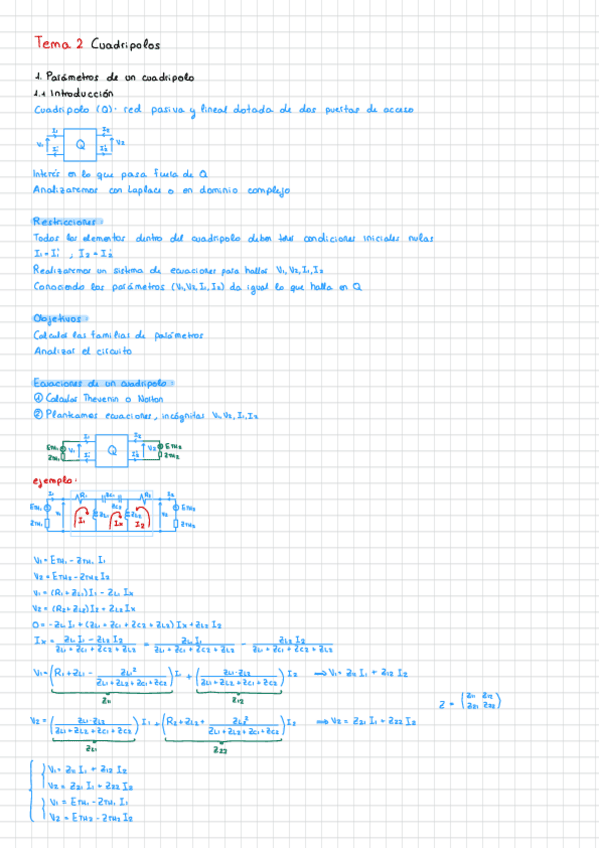 Tema 2 Cuadripolos
1. Parámetros de un cuadripolo
1.1 Introducción
Cuadripolo (Q): red pasiva y lineal dotada de dos puertas de acceso
I₁ I₂
V₁ Q V₂
I₁' I₂'
Interés en lo que pasa fuera de Q
Analizaremos con Laplace o en dominio complejo
Restricciones:
Todos los elementos dentro del cuadripolo deben tener condiciones iniciales nulas
I₁ = I₁' , I₂ = I₂'
Realizaremos un sistema de ecuaciones para hallar V₁, V₂, I₁, I₂
Conociendo los parámetros (V₁, V₂, I₁, I₂) da igual lo que halla en Q
Objetivos:
Calcular las familias de parámetros
Analizar el circuito
Ecuaciones de un cuadripolo:
① Calcular Thevenin o Norton
② Planteamos ecuaciones, incógnitas V₁, V₂, I₁, I₂
I₁ I₂
ETH₁ V₁ Q V₂ ETH₂
ZTH₁ I₁' I₂' ZTH₂
ejemplo:
I₁ R₁ R₂ I₂
ETH₁ V₁ ZL₁ ZL₂ V₂ ETH₂
ZTH₁ I₁ Ix I₂ ZTH₂
V₁ = ETH₁ - ZTH₁ I₁
V₂ = ETH₂ - ZTH₂ I₂
V₁ = (R₁ + ZL₁) I₁ - ZL₁ Ix
V₂ = (R₂ + ZL₂) I₂ + ZL₂ Ix
0 = -ZL₁ I₁ + (ZL₁ + ZC₁ + ZC₂ + ZL₂) Ix + ZL₂ I₂
Ix = (ZL₁ I₁ - ZL₂ I₂) / (ZL₁ + ZC₁ + ZC₂ + ZL₂) = ZL₁ I₁ / (ZL₁ + ZC₁ + ZC₂ + ZL₂) - ZL₂ I₂ / (ZL₁ + ZC₁ + ZC₂ + ZL₂)
V₁ = (R₁ + ZL₁ - ZL₁² / (ZL₁ + ZL₂ + ZC₁ + ZC₂)) I₁ + (ZL₁·ZL₂ / (ZL₁ + ZL₂ + ZC₁ + ZC₂)) I₂ ⟹ V₁ = Z₁₁ I₁ + Z₁₂ I₂
Z₁₁ Z₁₂
Z = (Z₁₁ Z₁₂
Z₂₁ Z₂₂)
V₂ = (ZL₁·ZL₂ / (ZL₁ + ZL₂ + ZC₁ + ZC₂)) I₁ + (R₂ + ZL₂ + ZL₂² / (ZL₁ + ZL₂ + ZC₁ + ZC₂)) I₂ ⟹ V₂ = Z₂₁ I₁ + Z₂₂ I₂
Z₂₁ Z₂₂
V₁ = Z₁₁ I₁ + Z₁₂ I₂
V₂ = Z₂₁ I₁ + Z₂₂ I₂
V₁ = ETH₁ - ZTH₁ I₁
V₂ = ETH₂ - ZTH₂ I₂